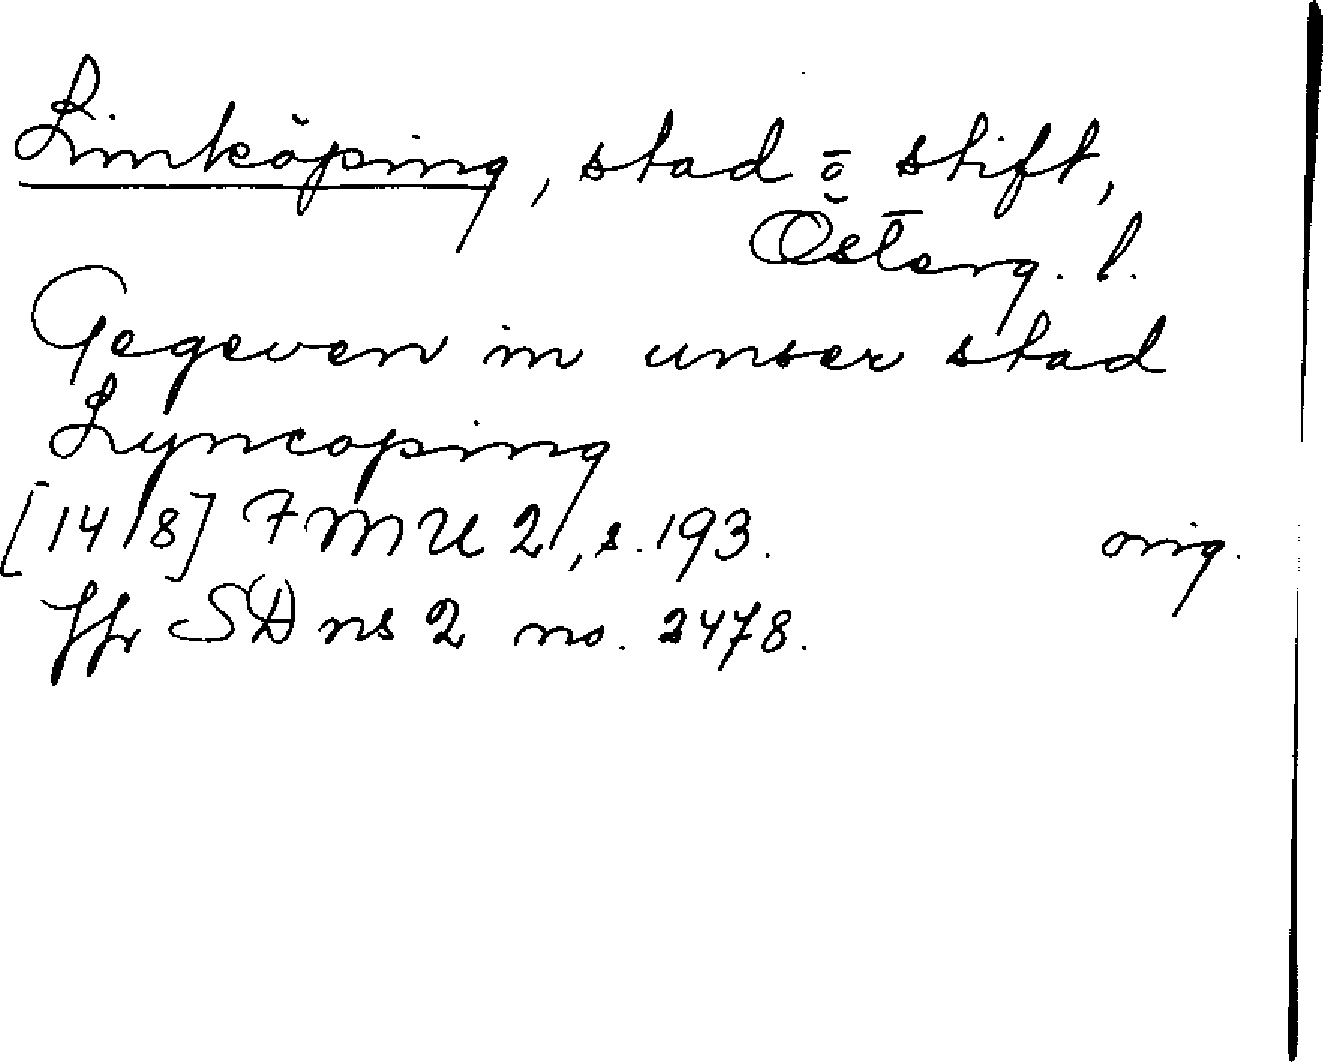 Linköping, stad ō stift,
Österg. l.
Gegeven in unser stad
Lyncoping
[1418] FMU 2, s. 193. orig.
Jfr SD ns 2 no. 2478.